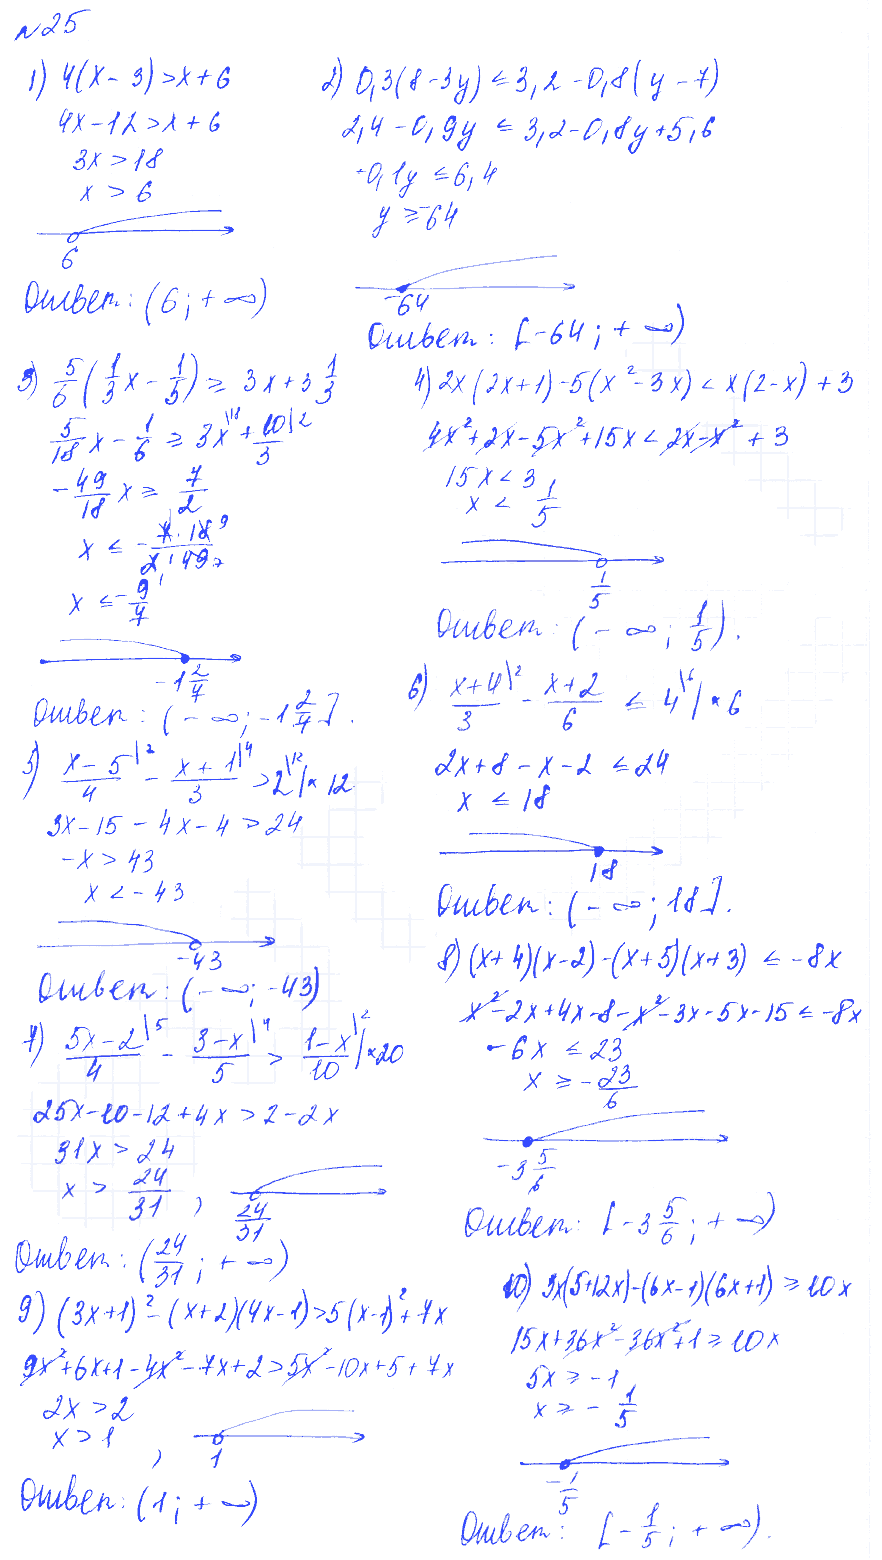 №25
1) 4(x-3)>x+6
4x-12>x+6
3x>18
x>6
6
Ответ: (6; +∞)
2) 0,3(8-3y)≤3,2-0,8(y-7)
2,4-0,9y≤3,2-0,8y+5,6
-0,1y≤6,4
y≥-64
-64
Ответ: [-64; +∞)
3) 5/6(1/3x-1/5)≥3x+3 1/3
5/18x-1/6≥3x\18+10/3\2
-49/18x≥7/2
x≤-7·18/2·49
x≤-9/7
-1 2/7
Ответ: (-∞; -1 2/7].
4) 2x(2x+1)-5(x²-3x)<x(2-x)+3
4x²+2x-5x²+15x<2x-x²+3
15x<3
x<1/5
1/5
Ответ: (-∞; 1/5).
5) x-5/4\3-x+1/3\4>2\12|×12
3x-15-4x-4>24
-x>43
x<-43
-43
Ответ: (-∞; -43)
6) x+4/3\2-x+2/6≤4\6|×6
2x+8-x-2≤24
x≤18
18
Ответ: (-∞; 18].
7) 5x-2/4\5-3-x/5\4>1-x/10\2|×20
25x-10-12+4x>2-2x
31x>24
x>24/31,
24/31
Ответ: (24/31; +∞)
8) (x+4)(x-2)-(x+5)(x+3)≤-8x
x²-2x+4x-8-x²-3x-5x-15≤-8x
-6x≤23
x≥-23/6
-3 5/6
Ответ: [-3 5/6; +∞)
9) (3x+1)²-(x+2)(4x-1)>5(x-1)²+7x
9x²+6x+1-4x²-7x+2>5x²-10x+5+7x
2x>2
x>1,
1
Ответ: (1; +∞)
10) 3x(5+12x)-(6x-1)(6x+1)≥10x
15x+36x²-36x²+1≥10x
5x≥-1
x≥-1/5
-1/5
Ответ: [-1/5; +∞).